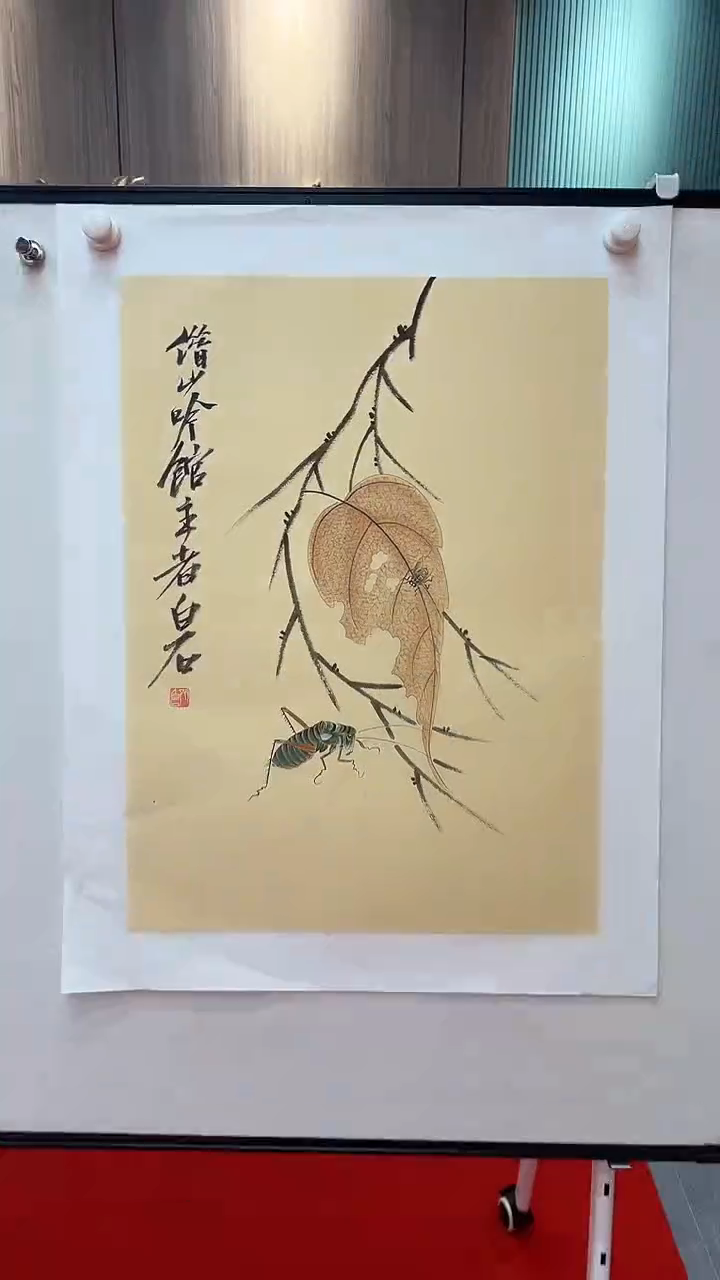 借山吟館主者白石